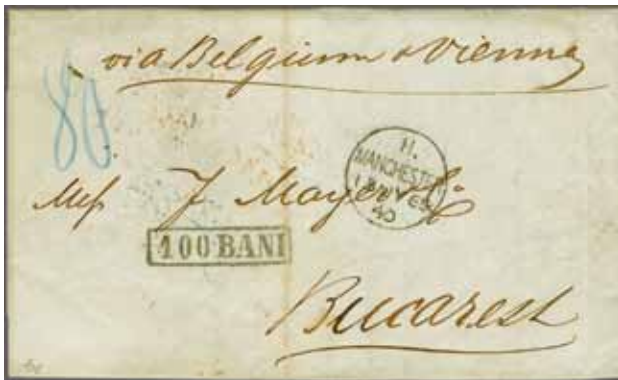 via Belgium & Vienna
80
H.
MANCHESTER
NV 69
Mess J Mayer & Co
100 BANI
Bucarest